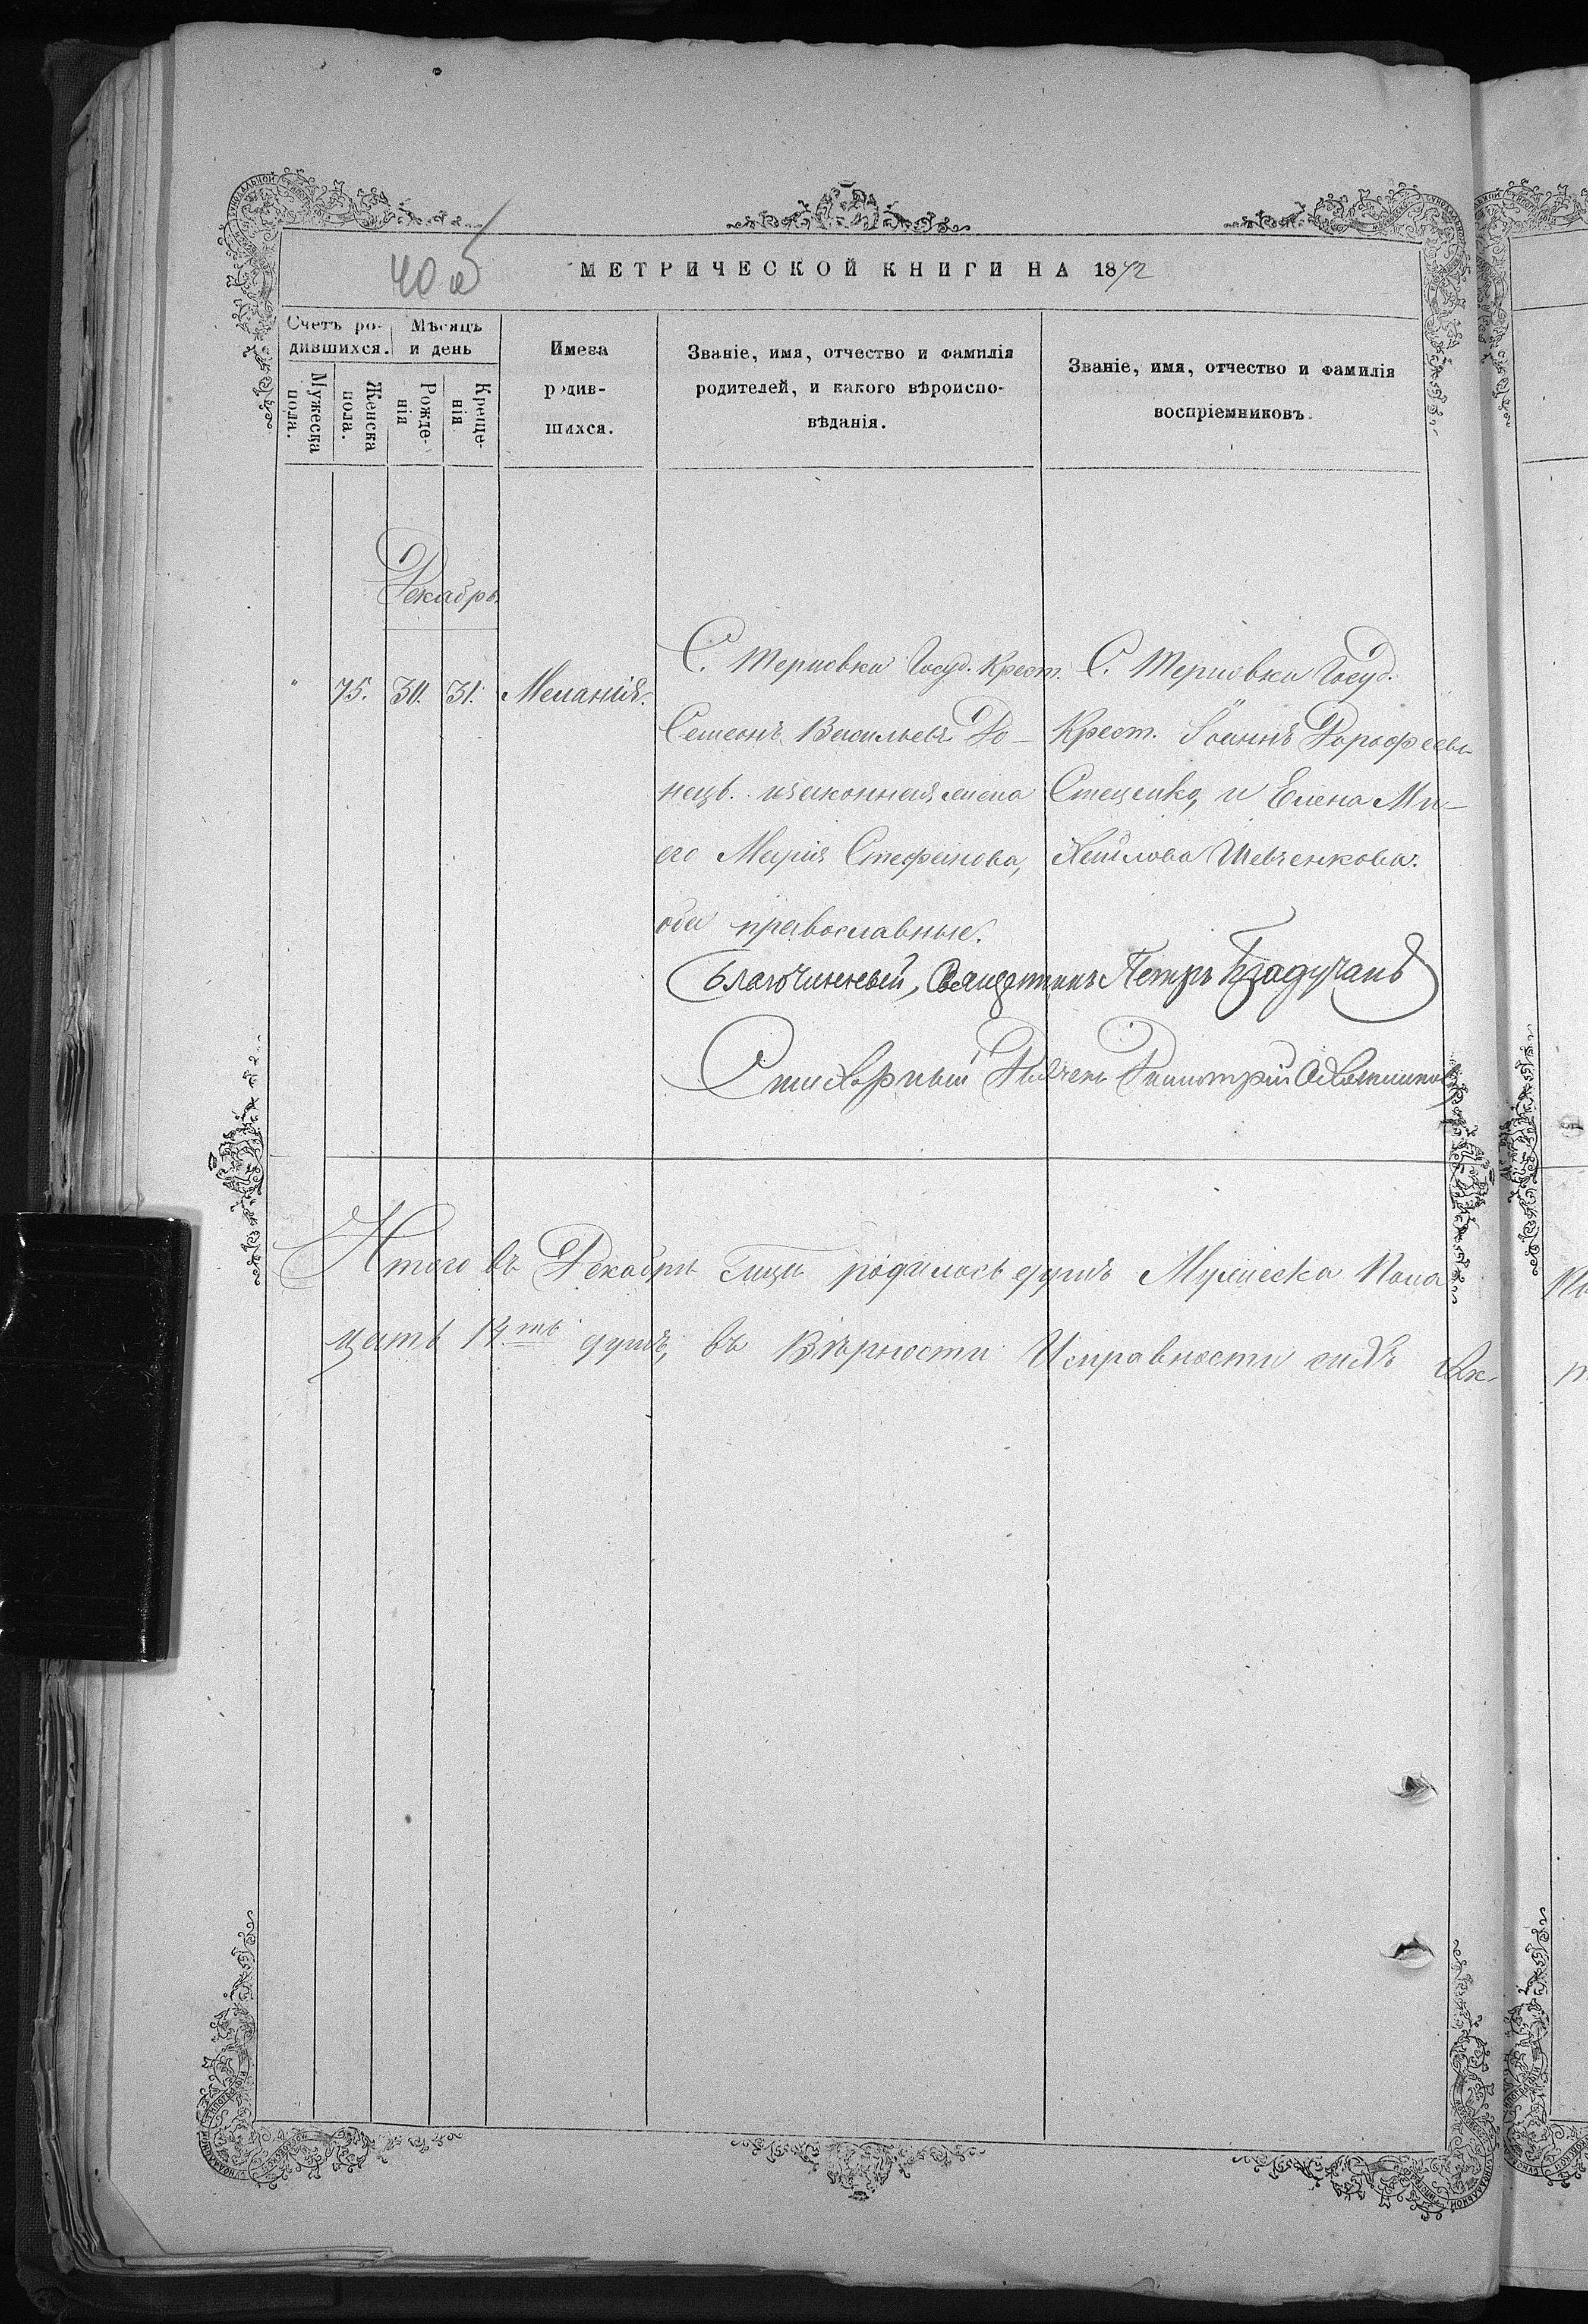 40 об
МЕТРИЧЕСКОЙ КНИГИ НА 1872
Счетъ ро-
дившихся.
Мѣсяцъ
и день
Мужеска
пола.
Женска
пола.
Рожде-
нія
Креще-
нія
Имена
родив-
шихся.
Званіе, имя, отчество и фамилія
родителей, и какого вѣроиспо-
вѣданія.
Званіе, имя, отчество и фамилія
воспріемниковъ.
Декабрь.
" 75. 30. 31. Меланія.
С. Терновки Госуд. Крест.
Семеонъ Васильевъ До-
нецъ. и законная жена
его Марія Стефанова,
оба православные.
С. Терновки Госуд.
Крест. Іоаннъ Дорофеевъ
Стеценко, и Елена Ми-
хайлова Шевченкова.
Благочинный, Священникъ Петръ
Стихарный Дьячекъ Димитрій
Итого въ Декабрѣ родилось душъ Мужеска Пола
цать 14ть душъ, въ Вѣрности Исправности сихъ